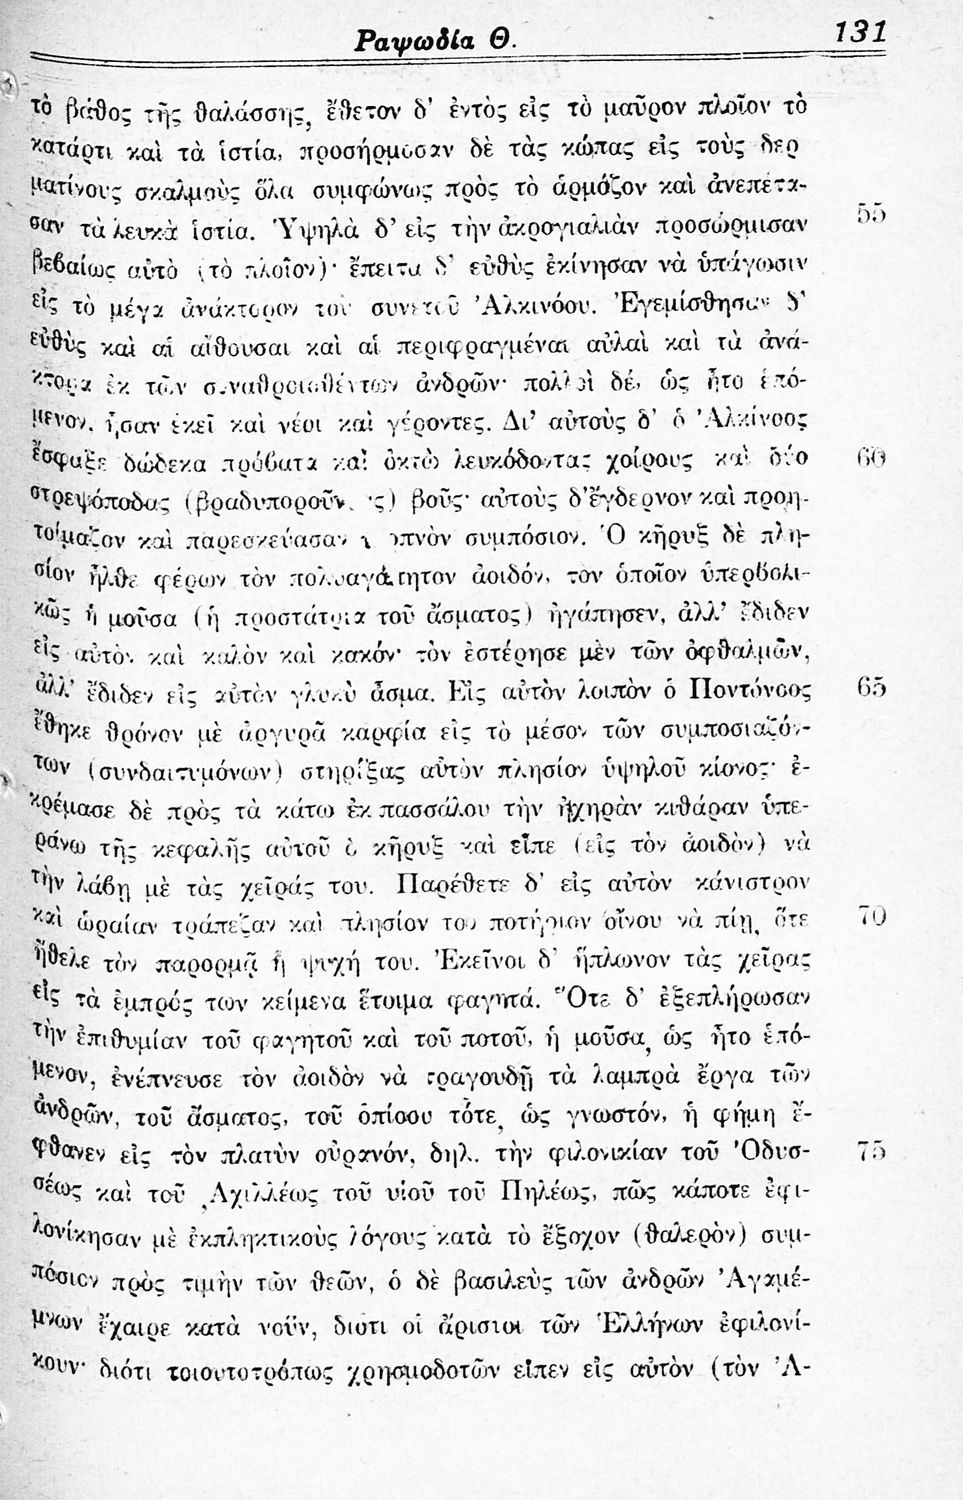 Ραψωδία Θ.
131
τὸ βάθος τῆς θαλάσσης, ἔθετον δ' ἐντὸς εἰς τὸ μαῦρον πλοῖον τὸ
κατάρτι καὶ τὰ ἱστία, προσήρμοσαν δὲ τὰς κώπας εἰς τοὺς δερ
ματίνους σκαλμοὺς ὅλα συμφώνως πρὸς τὸ ἁρμόζον καὶ ἀνεπέτα-
σαν τὰ λευκὰ ἱστία. Ὑψηλὰ δ' εἰς τὴν ἀκρογιαλιὰν προσώρμισαν
55
βεβαίως αὐτὸ (τὸ πλοῖον)· ἔπειτα δ' εὐθὺς ἐκίνησαν νὰ ὑπάγωσιν
εἰς τὸ μέγα ἀνάκτορον τοῦ συνετοῦ Ἀλκινόου. Ἐγεμίσθησαν δ'
εὐθὺς καὶ αἱ αἴθουσαι καὶ αἱ περιφραγμέναι αὐλαὶ καὶ τὰ ἀνά-
κτορα ἐκ τῶν συναθροισθέντων ἀνδρῶν· πολλοὶ δέ, ὡς ἦτο ἑπό-
μενον, ἦσαν ἐκεῖ καὶ νέοι καὶ γέροντες. Δι' αὐτοὺς δ' ὁ Ἀλκίνοος
ἔσφαξε δώδεκα πρόβατα καὶ ὀκτὼ λευκόδοντας χοίρους καὶ δύο
60
στρεψόποδας (βραδυποροῦν ς) βοῦς· αὐτοὺς δ' ἔγδερνον καὶ προη-
τοίμαζον καὶ παρεσκεύασαν συμπόσιον. Ὁ κῆρυξ δὲ πλη-
σίον ἦλθε φέρων τὸν πολυαγάπητον ἀοιδόν, τὸν ὁποῖον ὑπερβολι-
κῶς ἡ μοῦσα (ἡ προστάτρια τοῦ ἄσματος) ἠγάπησεν, ἀλλ' ἔδιδεν
εἰς αὐτὸν καὶ καλὸν καὶ κακόν· τὸν ἐστέρησε μὲν τῶν ὀφθαλμῶν,
ἀλλ' ἔδιδεν εἰς αὐτὸν γλυκὺ ἆσμα. Εἰς αὐτὸν λοιπὸν ὁ Ποντόνοος
65
ἔθηκε θρόνον μὲ ἀργυρᾶ καρφία εἰς τὸ μέσον τῶν συμποσιαζόν-
των (συνδαιτυμόνων) στηρίξας αὐτὸν πλησίον ὑψηλοῦ κίονος· ἐ-
κρέμασε δὲ πρὸς τὰ κάτω ἐκ πασσάλου τὴν ἠχηρὰν κιθάραν ὑπε-
ράνω τῆς κεφαλῆς αὐτοῦ ὁ κῆρυξ καὶ εἶπε (εἰς τὸν ἀοιδὸν) νὰ
τὴν λάβῃ μὲ τὰς χεῖράς του. Παρέθετε δ' εἰς αὐτὸν κάνιστρον
καὶ ὡραίαν τράπεζαν καὶ πλησίον του ποτήριον οἴνου νὰ πίῃ, ὅτε
70
ἤθελε τὸν παρορμᾷ ἡ ψυχή του. Ἐκεῖνοι δ' ἥπλωνον τὰς χεῖρας
εἰς τὰ ἐμπρός των κείμενα ἕτοιμα φαγητά. Ὅτε δ' ἐξεπλήρωσαν
τὴν ἐπιθυμίαν τοῦ φαγητοῦ καὶ τοῦ ποτοῦ, ἡ μοῦσα, ὡς ἦτο ἑπό-
μενον, ἐνέπνευσε τὸν ἀοιδὸν νὰ τραγουδῇ τὰ λαμπρὰ ἔργα τῶν
ἀνδρῶν, τοῦ ἄσματος, τοῦ ὁπίοου τότε, ὡς γνωστόν, ἡ φήμη ἔ-
φθανεν εἰς τὸν πλατὺν οὐρανόν, δηλ. τὴν φιλονικίαν τοῦ Ὀδυσ-
75
σέως καὶ τοῦ Ἀχιλλέως τοῦ υἱοῦ τοῦ Πηλέως, πῶς κάποτε ἐφι-
λονίκησαν μὲ ἐκπληκτικοὺς λόγους κατὰ τὸ ἔξοχον (θαλερὸν) συμ-
πόσιον πρὸς τιμὴν τῶν θεῶν, ὁ δὲ βασιλεὺς τῶν ἀνδρῶν Ἀγαμέ-
μνων ἔχαιρε κατὰ νοῦν, διότι οἱ ἄριστοι τῶν Ἑλλήνων ἐφιλονί-
κουν· διότι τοιουτοτρόπως χρησμοδοτῶν εἶπεν εἰς αὐτὸν (τὸν Ἀ-